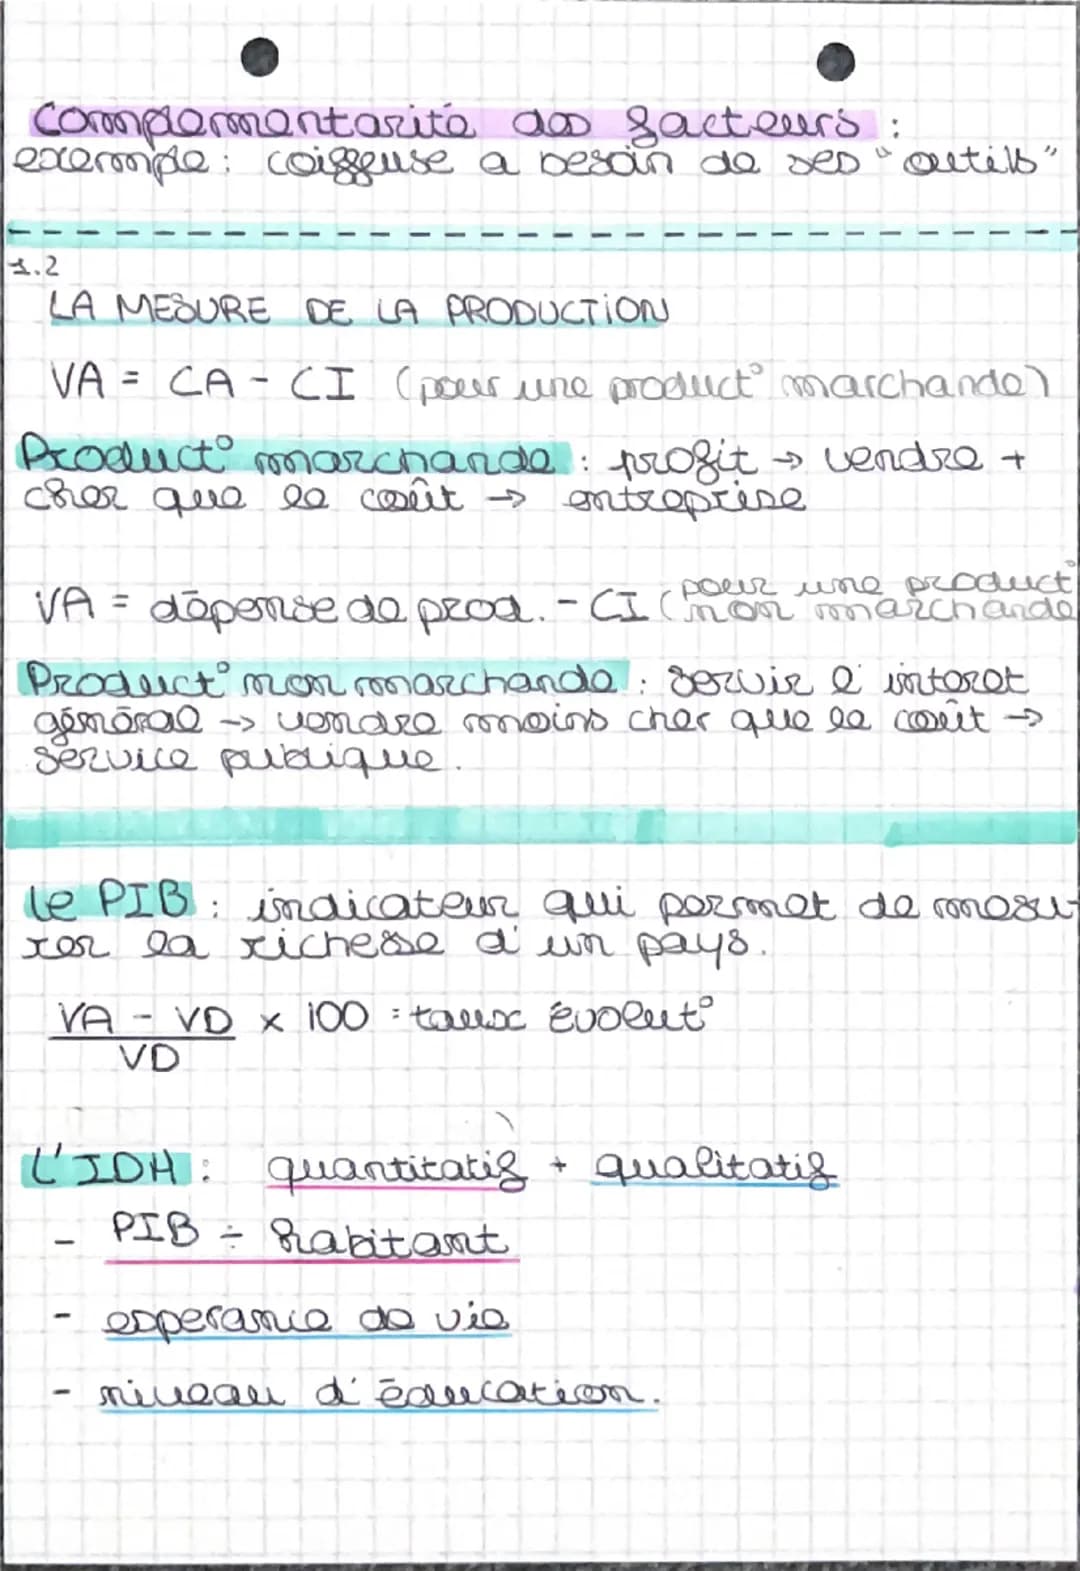 Complementarité des facteurs :
exemple : coiffeuse a besoin de ses "outils"
1.2
LA MESURE DE LA PRODUCTION
VA = CA - CI (pour une product° marchande)
Product° marchande : profit → vendre +
cher que le coût → entreprise
VA = dépense de prod. - CI (pour une product°
non marchande
Product° non marchande : servir l'interet
général → vendre moins cher que le coût →
service publique.
Le PIB : indicateur qui permet de mesu-
rer la richesse d'un pays.
VA - VD x 100 = taux évolut°
VD
L'IDH : quantitatif + qualitatif
- PIB ÷ habitant
- esperance de vie
- niveau d'éducation.